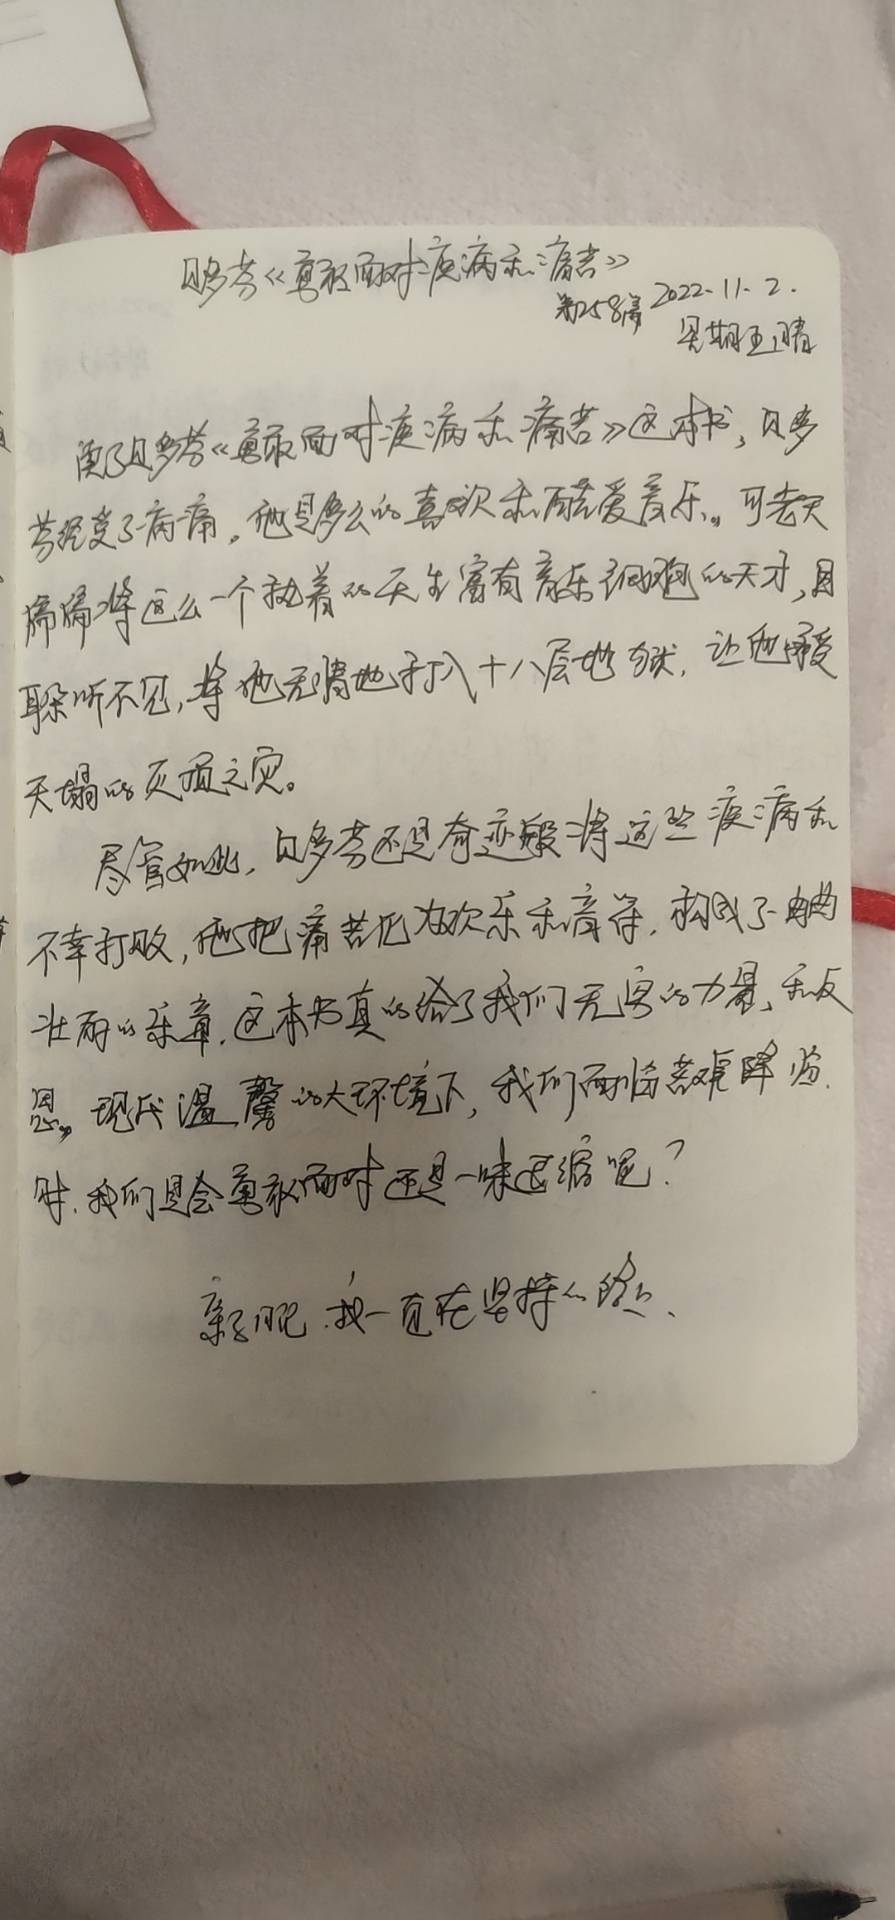 贝多芬《勇敢面对疾病和痛苦》
第258篇 2022.11.2.
星期五 晴
读了贝多芬《勇敢面对疾病和痛苦》这本书，贝多
芬经受了病痛。他是多么的喜欢和酷爱音乐。可老天
偏偏将这么一个执着的天生富有音乐细胞的天才，
耳朵听不见，将他无情地打入十八层地狱，让他承受
天塌的灭顶之灾。
尽管如此，贝多芬还是奇迹般将这些疾病和
不幸打败，他把痛苦化为欢乐和音符，构成了一曲曲
壮丽的乐章，这本书真的给了我们无穷的力量，和反
思。现代温馨的大环境下，我们面临苦难降临
时，我们是会勇敢面对还是一味退缩呢？
我一直在坚持